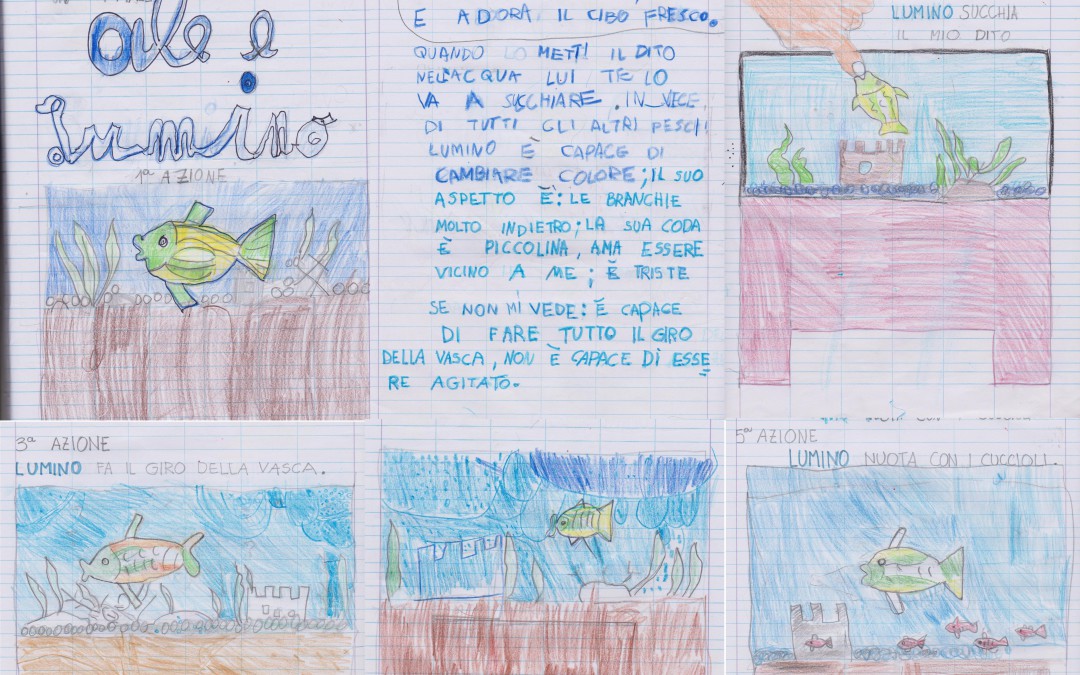 ale e
Lumino
1ª AZIONE
E ADORA IL CIBO FRESCO.
QUANDO LO METTI IL DITO
NELL'ACQUA LUI TE LO
VA A SUCCHIARE. IN VECE
DI TUTTI GLI ALTRI PESCI
LUMINO È CAPACE DI
CAMBIARE COLORE; IL SUO
ASPETTO È: LE BRANCHIE
MOLTO INDIETRO; LA SUA CODA
È PICCOLINA, AMA ESSERE
VICINO A ME; È TRISTE
SE NON MI VEDE: È CAPACE
DI FARE TUTTO IL GIRO
DELLA VASCA, NON È CAPACE DI ESSE
RE AGITATO.
LUMINO SUCCHIA
IL MIO DITO
3ª AZIONE
LUMINO FA IL GIRO DELLA VASCA.
5ª AZIONE
LUMINO NUOTA CON I CUCCIOLI.